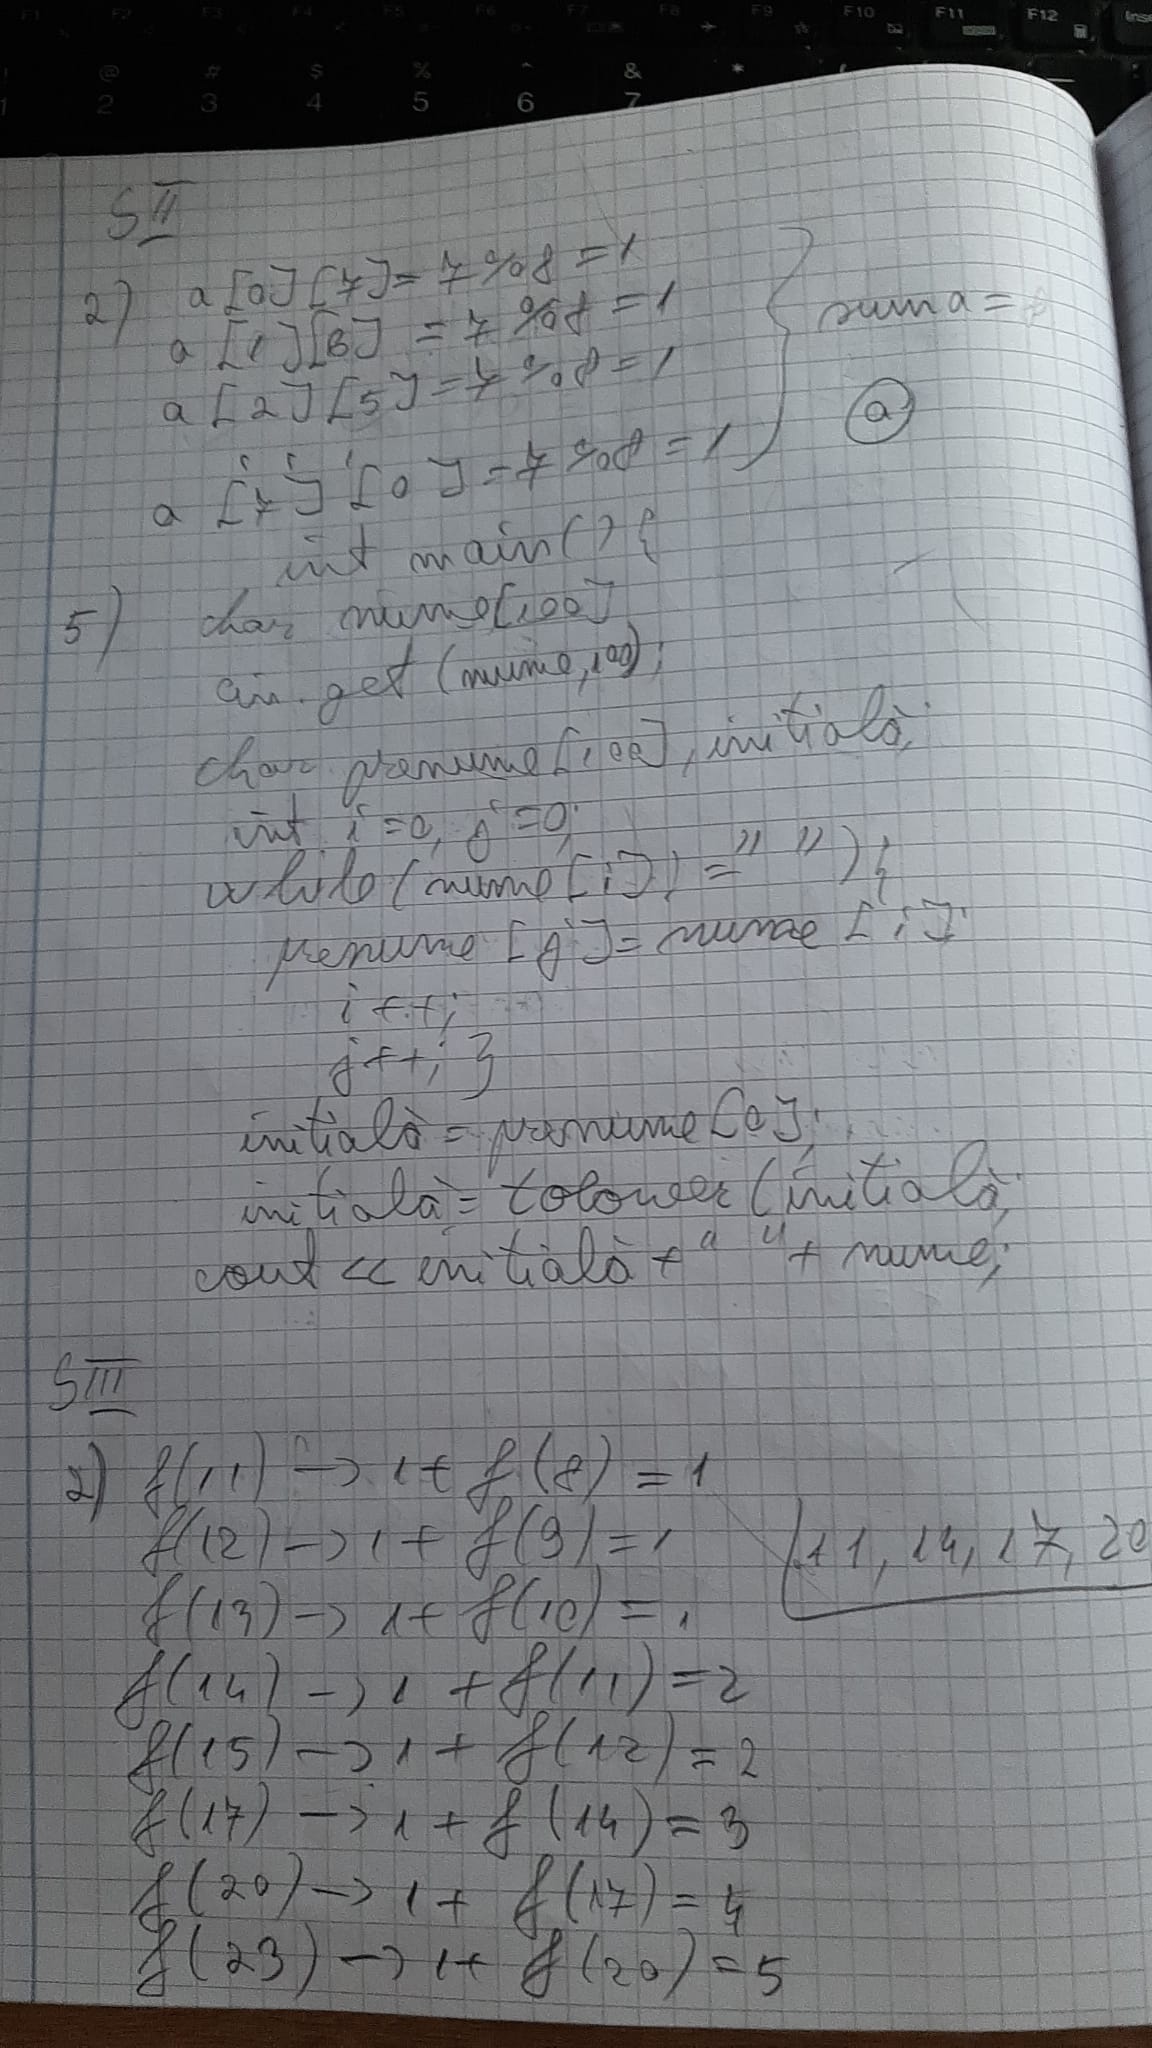 F1 F2 F3 F4 F5 F6 F7 F8 F9 F10 F11 F12 Inse
! @ # $ % ^ & *
1 2 3 4 5 6 7
SII
2) a[0][7]=7%8=1
a[1][6]=7%8=1
a[2][5]=7%8=1
suma=
a
a[7][0]=7%8=1
int main(){
5) char nume[100]
cin.get(nume,100);
char prenume[100], inițială;
int i=0, j=0;
while(nume[i]!=" "){
prenume[j]=nume[i];
i++;
j++;}
inițială=prenume[0];
inițială=tolower(inițială;
cout<<inițială+" "+nume;
SIII
2) f(11)->1+f(8)=1
f(12)->1+f(9)=1
11, 14, 17, 20
f(13)->1+f(10)=1
f(14)->1+f(11)=2
f(15)->1+f(12)=2
f(17)->1+f(14)=3
f(20)->1+f(17)=4
f(23)->1+f(20)=5